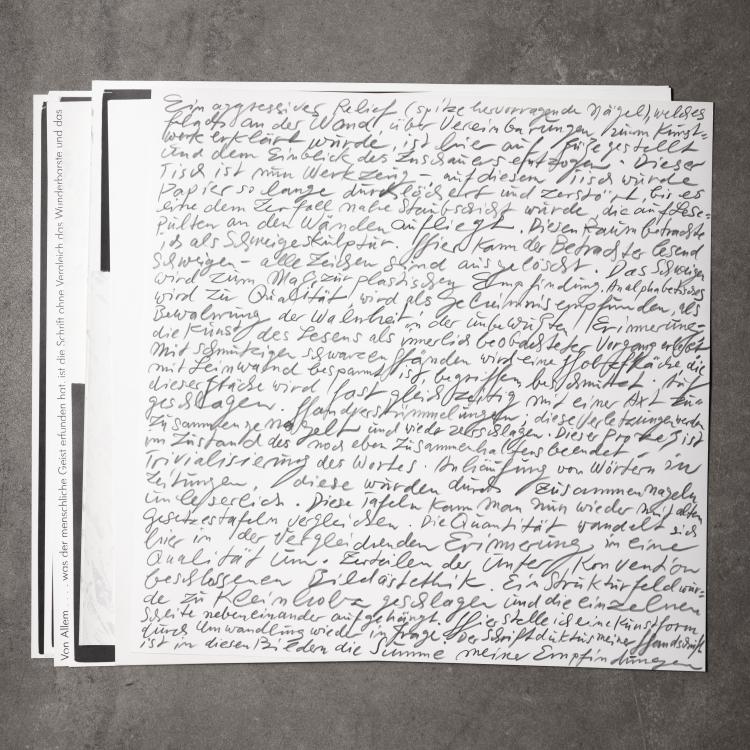 Ein aggressives Relief (spitze hervorragende Nägel), welches
flach an der Wand, über Vereinbarungen, zum Kunst=
werk erklärt wurde, ist hier auf Füße gestellt
und dem Einblick des Zuschauers entzogen. Dieser
Tisch ist nun Werkzeug - auf diesem Tisch wurde
Papier so lange durchlöchert und zerstört, bis es
eine dem Zerfall nahe Staubschicht wurde, die auf Lese=
pulten an den Wänden aufliegt. Diesen Raum betrachte
ich als Schweigeskulptur. Hier kann der Betrachter lesend
schweigen - alle Zeichen sind ausgelöscht. Das Schweigen
wird zum Maß zur plastischen Empfindung. Analphabetisches
wird zu Qualität, wird als Geheimnis empfunden, als
Bewahrung der Wahrheit in der unbewußten Erinnerung
die Kunst des Lesens als innerlich beobachteter Vorgang erlebt
Mit schmutzigen schwarzen Händen wird eine Hobelfläche, die
mit Leinwand bespannt ist, begriffen, beschmutzt. Auf
dieser Fläche wird fast gleichzeitig mit einer Axt zu=
geschlagen. Handverstümmelungen; diese Verletzungen werden
zusammengenagelt und wieder zerschlagen. Dieser Prozeß ist
im Zustand des noch eben Zusammenhaltens beendet.
Trivialisierung des Wortes. Anhäufung von Wörtern in
Zeitungen, diese wurden durch Zusammennageln
unleserlich. Diese Tafeln kann man nun wieder mit alten
Gesetzestafeln vergleichen. Die Quantität wandelt sich
hier in der vergleichenden Erinnerung in eine
Qualität um. Zerteilen der unter Konvention
beschlossenen Bildästhetik. Ein Strukturfeld wur=
de zu Kleinholz geschlagen und die einzelnen
Scheite nebeneinander aufgehängt. Hier stelle ich eine Kunstform
durch Umwandlung wieder in Frage. Der Schriftduktus meiner Handschrift
ist in diesen Bildern die Summe meiner Empfindungen
Von Allem ... was der menschliche Geist erfunden hat, ist die Schrift ohne Vergleich das Wunderbarste und das